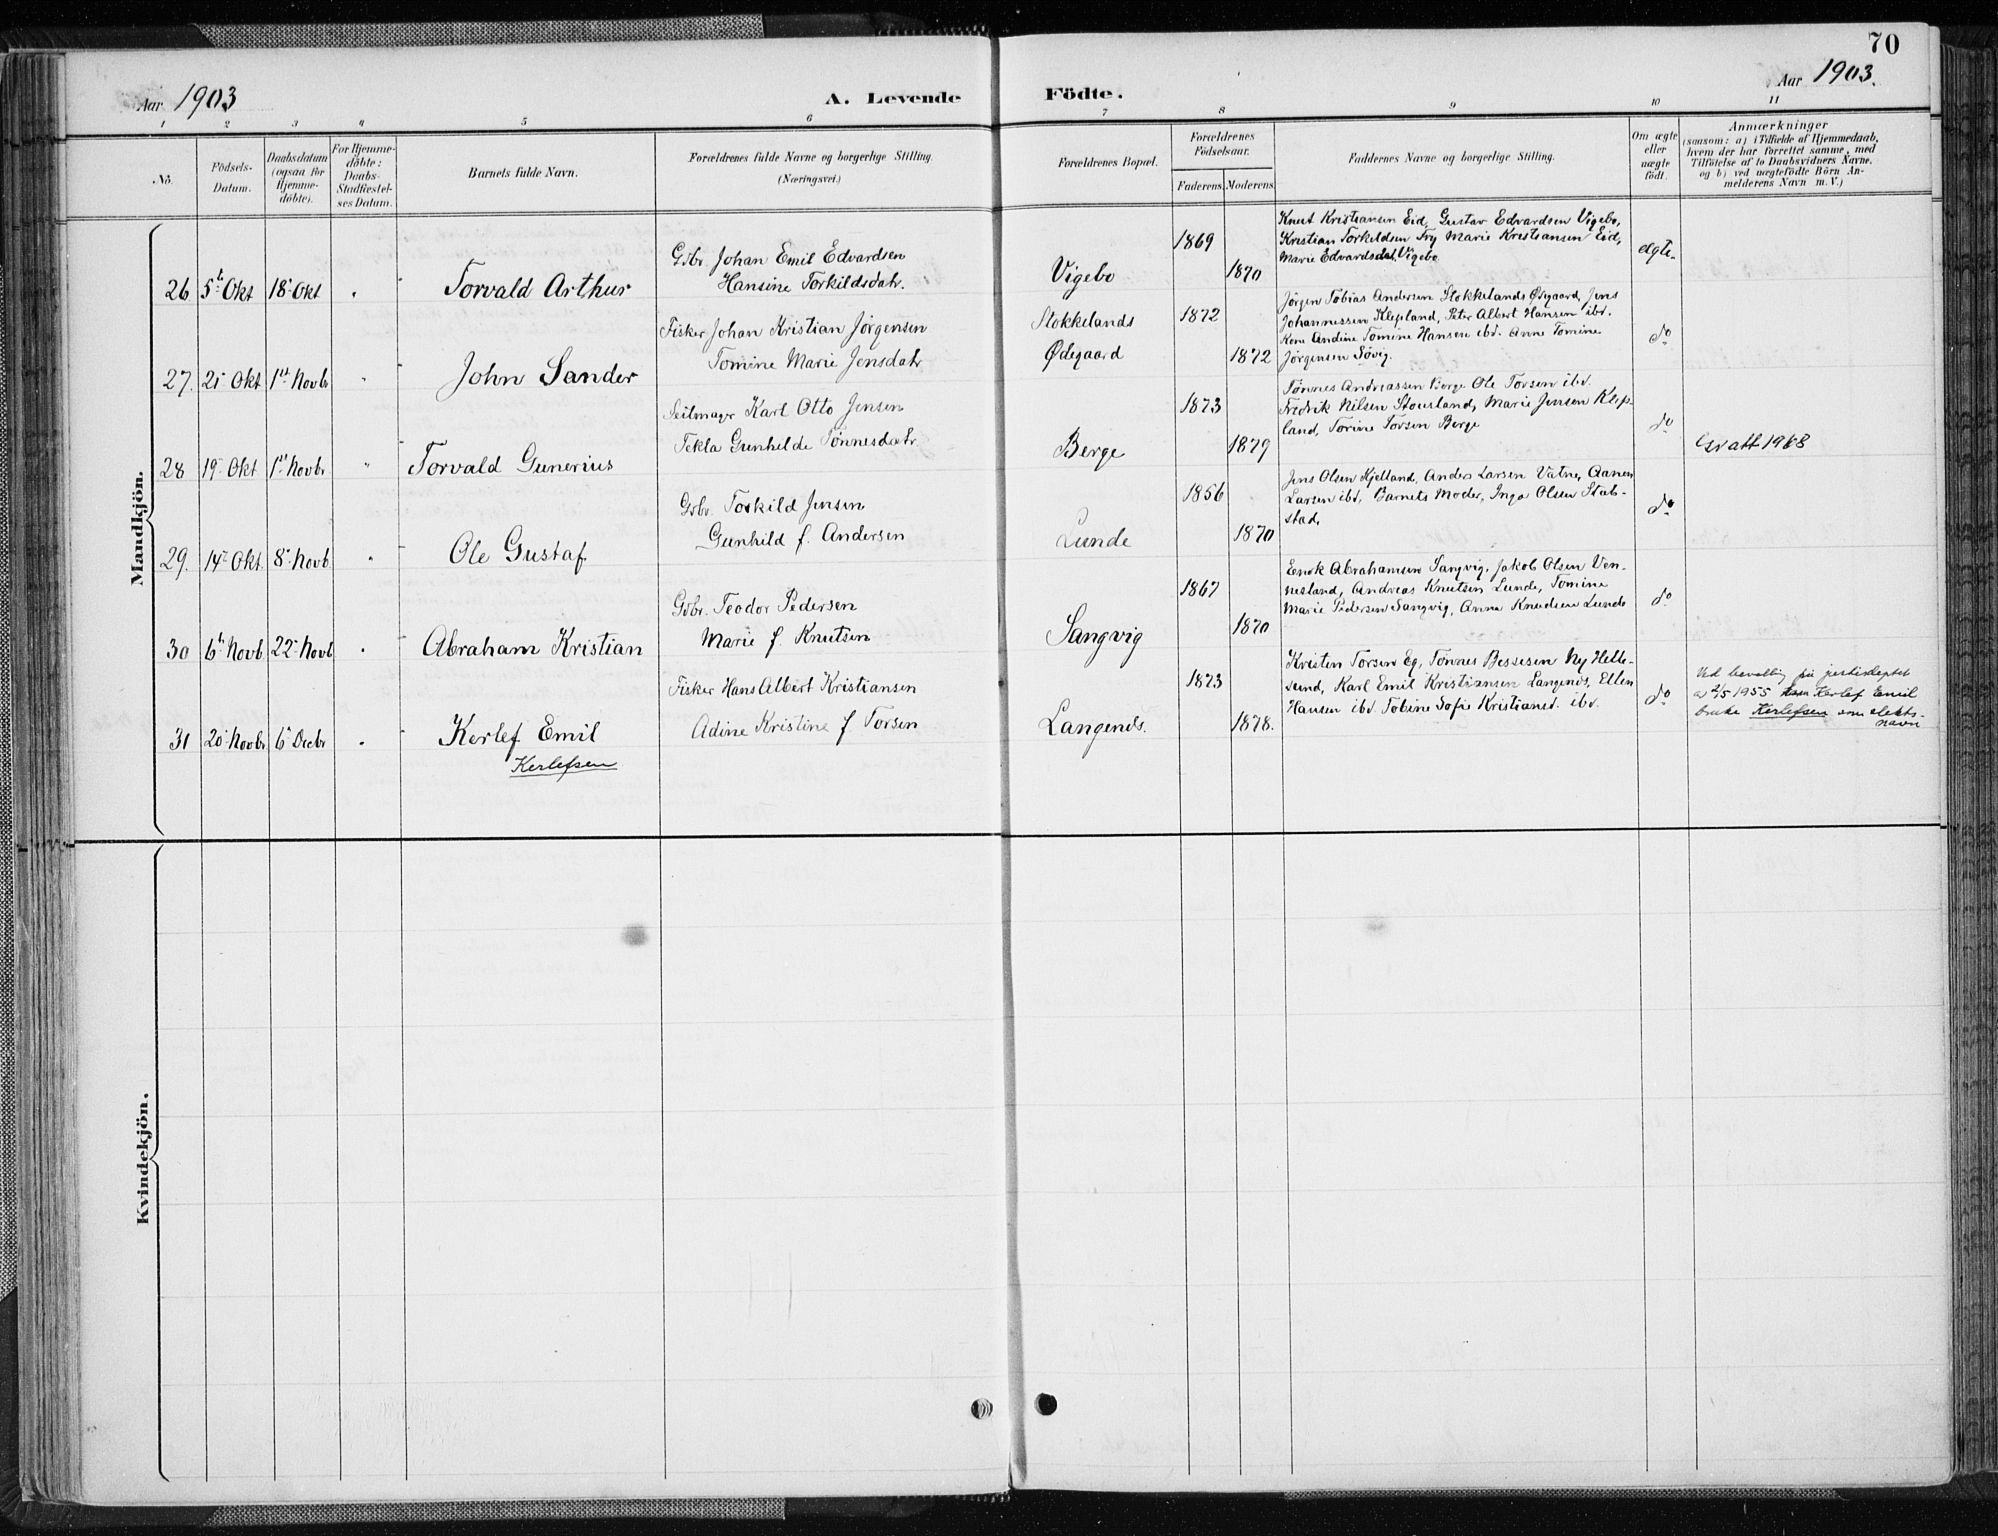 70
Aar 1903
A. Levende
Födte.
Aar 1903.
1 2 3 4 5 6 7 8 9 10 11
No.
Födsels-
Datum.
Daabsdatum
(ogsaa for
Hjemme-
döbte).
For Hjemme-
döbte:
Daabs-
Stadfæstel-
ses Datum.
Barnets fulde Navn.
Forældrenes fulde Navne og borgerlige Stilling.
(Næringsvei.)
Forældrenes Bopæl.
Forældrenes
Födselsaar.
Faderens. Moderens.
Faddernes Navne og borgerlige Stilling.
Om ægte
eller
uægte
födt.
Anmærkninger
(saasom: a) i Tilfælde af Hjemmedaab,
hvem der har forrettet samme, med
Tilföielse af to Daabsvidners Navne.
og b) ved uægtefödte Börn An-
melderens Navn m. V.)
Mandkjön.
26 5te Okt 18 Okt " Torvald Arthur
Gbr. Johan Emil Edvardsen
Hansine Torkildsdatr.
Vigebo
1869
1870
Knut Kristiansen Eid, Gustav Edvardsen Vigebo,
Kristian Torkildsen Try Marie Kristiansen Eid,
Marie Edvardsdat. Vigebo
ægte
27. 21 Okt 1st Novbr " John Sander
Fisker Johan Kristian Jörgensen
Tomine Marie Jensdatr
Stokkelands
Ødegaard
1872
1872
Jörgen Tobias Andersen Stokkelands Ødegaard, Jens
Johannessen Klepland, Peter Albert Hansen ibd.
Kone Andine Tomine Hansen ibd. Anne Tomine
Jörgensen Sövig.
do
28 19 Okt 1st Novbr " Torvald Gunerius
Seilmager Karl Otto Jensen
Tekla Gunhilde Tönnesdatr
Berge
1873
1879
Tönnes Andreassen Berge Ole Torsen ibd.
Fredrik Nilsen Stousland, Marie Jensen Klep-
land, Torine Torsen Berge
do
att 1968
29. 14 Okt. 8 Novb " Ole Gustaf
Gbr. Torkild Jensen
Gunhild f. Andersen
Lunde
1856
1870
Jens Olsen Hjelland, Anders Larsen Vatne, Aanen
Larsen ibd, Barnets Moder, Inga Olsen Stub-
stad,
do
30 6te Novb. 22 Novb " Abraham Kristian
Gbr. Teodor Pedersen
Marie f. Knutsen
Sangvig
1867
1870
Enok Abrahamsen Sangvig, Jakob Olsen Ven-
nesland, Andreas Knutsen Lunde, Tomine
Marie Pedersen Sangvig, Anna Knudsen Lunde
do
31 20 Novbr 6 Decbr " Kerlef Emil
Kerlefsen
Fisker Hans Albert Kristiansen
Adine Kristine f Torsen
Langenæs.
1873
1878.
Kristen Torsen Eg, Tönnes Bessesen Ny Helle-
sund, Karl Emil Kristiansen Langenæs, Ellen
Hansen ibd. Tobine Sofie Kristiansd. ibd.
do
Ved bevilling fra justisdeptet
av 2/5 1955 kan Kerlef Emil
bruke Kerlefsen som slekts-
navn
Kvindekjön.